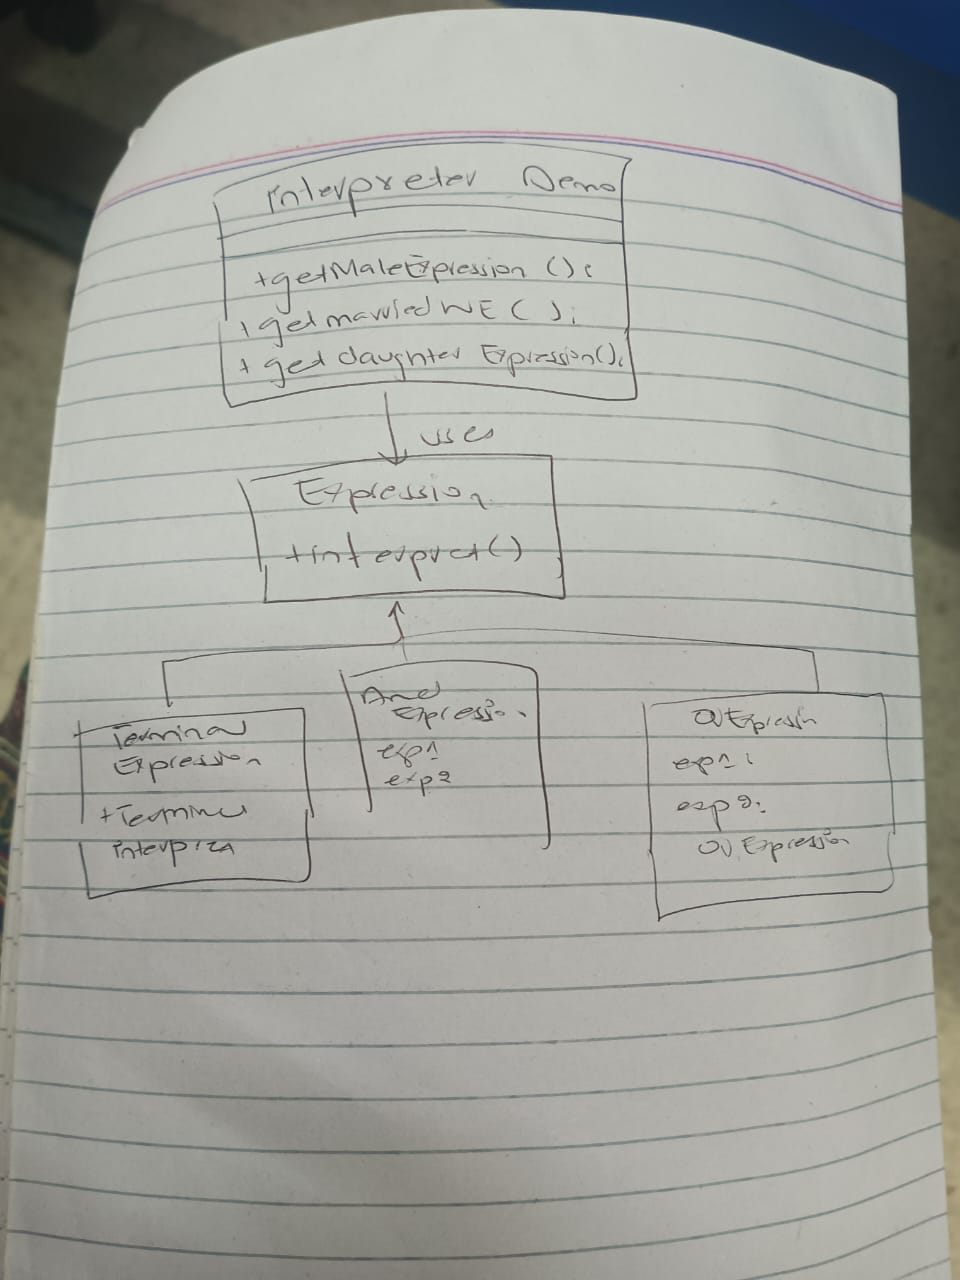 interpreter Demo
+getMaleExpression ();
+ getmarriedWE ( );
+ get daughter Expression();
uses
Expression
+interpret()
Terminal
Expression
+Terminal
And
Expression.
exp1
exp2
OrExpression
exp1 ;
exp2;
Or Expression